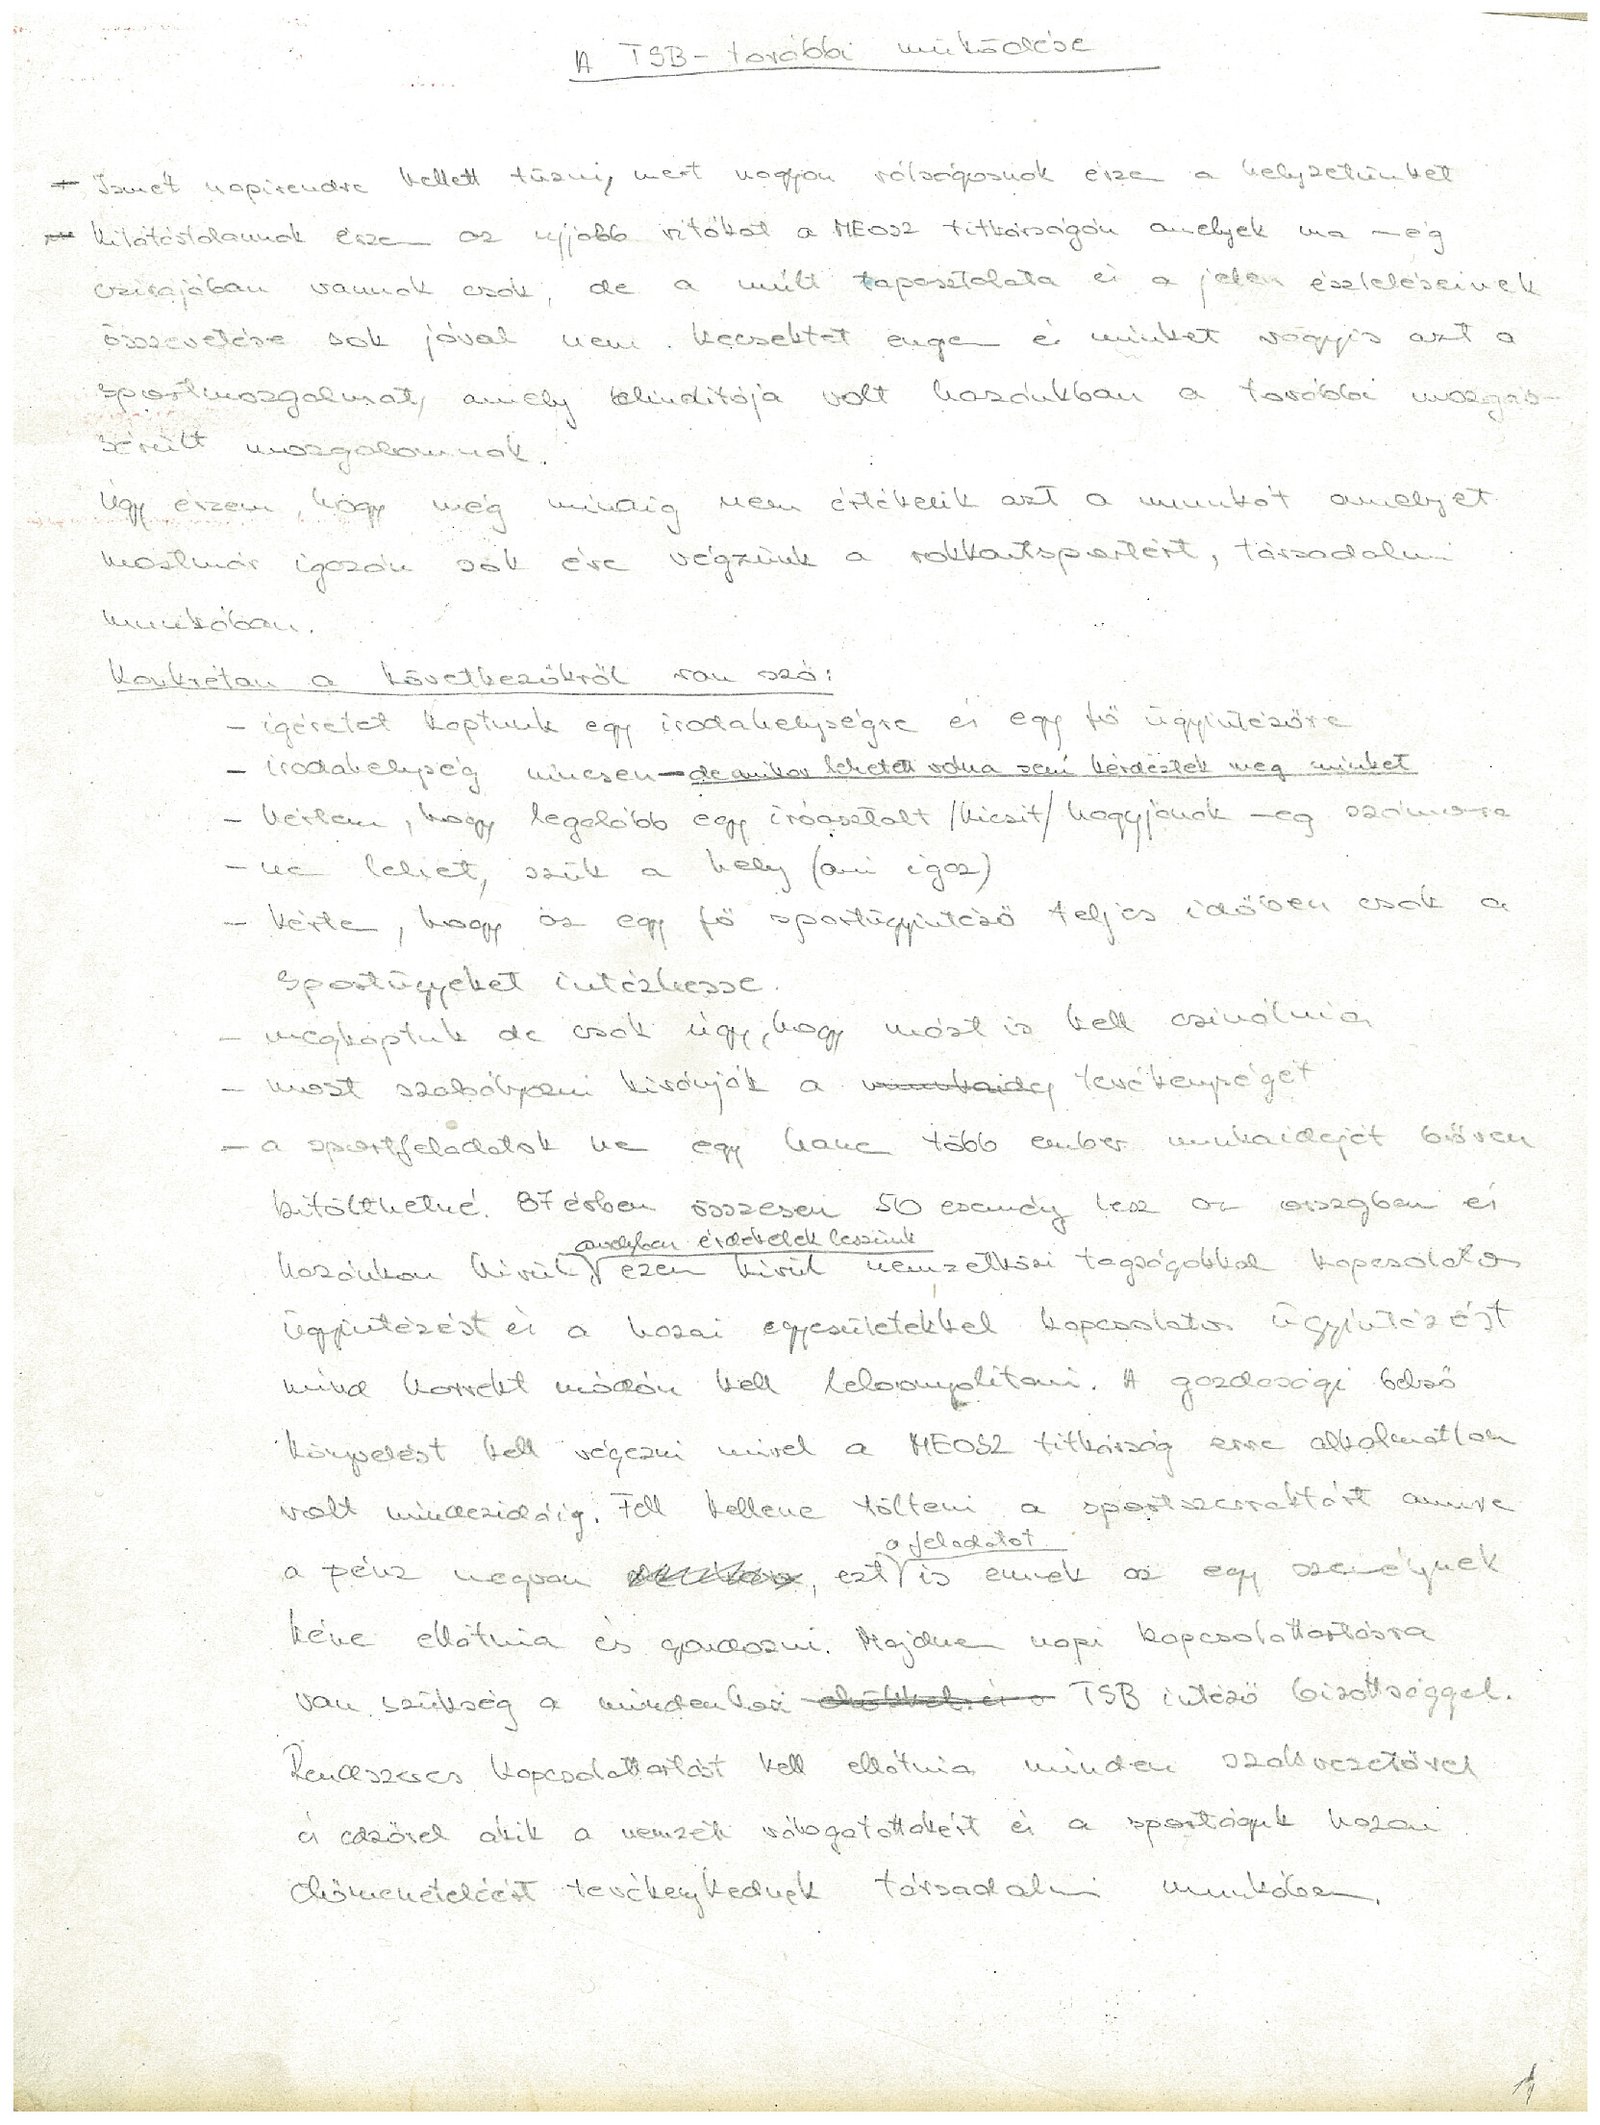 A TSB - további működése
- Ismét napirendre kellett tűzni, mert nagyon válságosnak érzem a helyzetünket
- Kilátástalannak érzem az ujjabb vitákat a MEOSZ titkárságán amelyek ma még
csirájában vannak csak, de a múlt tapasztalata és a jelen észleléseinek
összevetése sok jóval nem kecsegtet engem és minket vagyis azt a
sportmozgalmat, amely elindítója volt hazánkban a további mozgás-
sérült mozgalomnak.
Úgy érzem, hogy még mindig nem értékelik azt a munkát amelyet
mostmár igazán sok éve végzünk a rokkantsportért, társadalmi
munkában.
Konkrétan a következőkről van szó:
- igéretet kaptunk egy irodahelységre és egy fő ügyintézőre
- irodahelység nincsen - de amikor lehetett volna sem kérdeztek meg minket
- kértem, hogy legalább egy íróasztalt /kicsit/ hagyjanak meg számomra
- ne lehet, szűk a hely (ami igaz)
- kértem, hogy az egy fő sportügyintéző teljes időben csak a
sportügyeket intézhesse.
- megkaptuk de csak úgy, hogy mást is kell csinálnia
- most szabályozni kívánják a tevékenységét
- a sportfeladatok ne egy hanem több ember munkaidejét bőven
kitölthetné. 87 évben összesen 50 esemény lesz az országban és
amelyben érdekelek leszünk
hazánkon kívül, ezen kívül nemzetközi tagságokkal kapcsolatos
ügyintézést és a hazai egyesületekkel kapcsolatos ügyintézést
mind korrekt módon kell lebonyolítani. A gazdasági belső
könyvelést kell végezni mivel a MEOSZ titkárság erre alkalmatlan
volt mindezidáig. Fell kellene tölteni a sportszerraktárt amire
a feladatot
a pénz megvan, ezt is ennek az egy személynek
kéne ellátnia és gondozni. Majdnem napi kapcsolattartásra
van szükség a mindenkori TSB intéző bizottsággal.
Rendszeres kapcsolattartást kell ellátnia minden szakvezetővel
és edzővel akik a nemzeti válogatottakért és a sportágak hazai
előmeneteléért tevékenykednek társadalmi munkában.
1